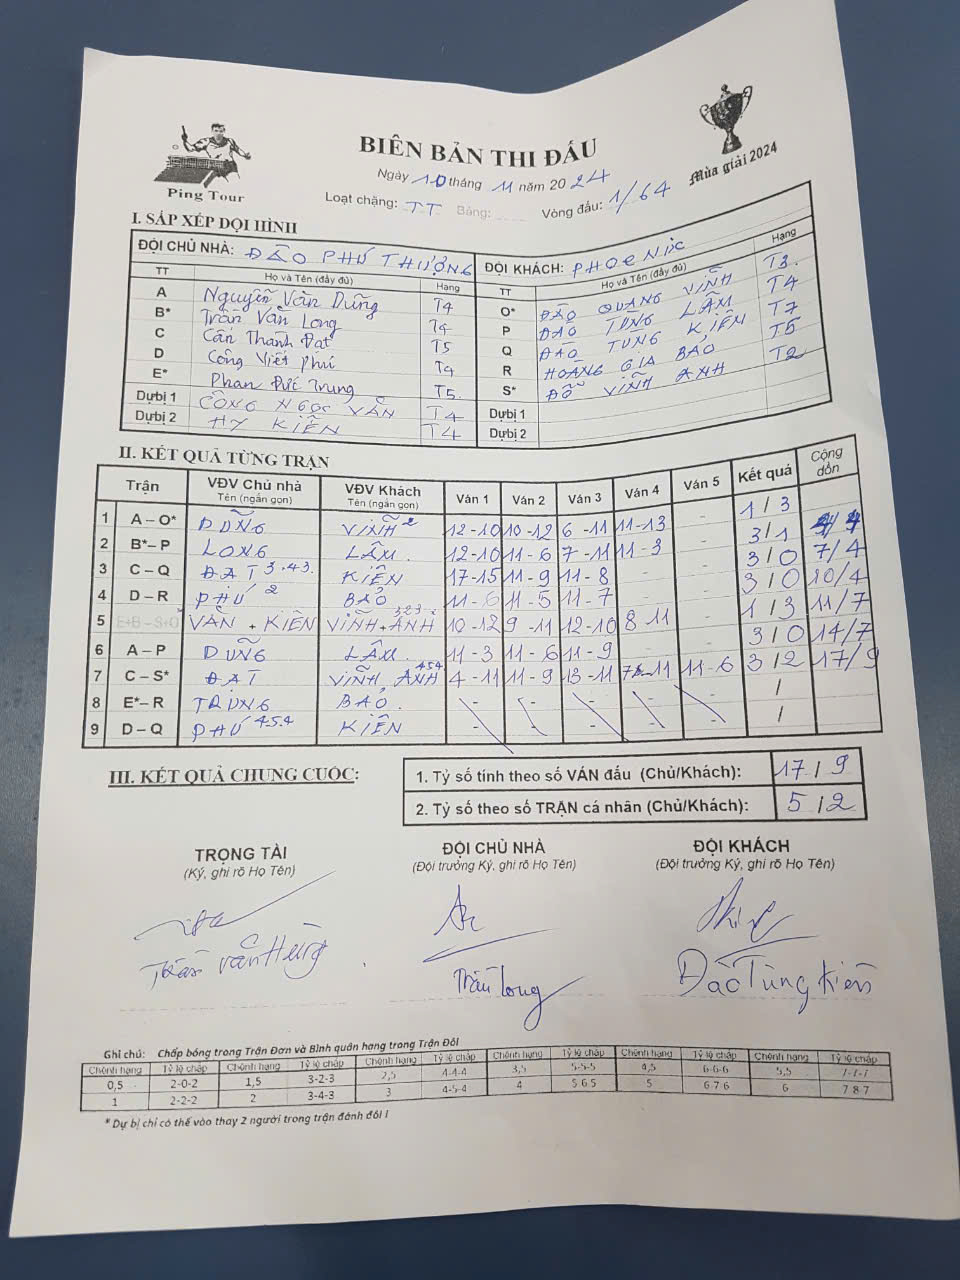 BIÊN BẢN THI ĐẤU
Ping Tour
Mùa giải 2024
Ngày 10 tháng 11 năm 2024
Loạt chặng: TT Bảng: Vòng đấu: 1/64
I. SẮP XẾP ĐỘI HÌNH
ĐỘI CHỦ NHÀ: ĐÀO PHÚ THƯỢNG ĐỘI KHÁCH: PHOENIC
TT Họ và Tên (đầy đủ) Hạng TT Họ và Tên (đầy đủ) Hạng
A Nguyễn Văn Dũng T4 O* ĐÀO QUANG VĨNH T3
B* Trần Văn Long T4 P ĐÀO TÙNG LÂM T4
C Cấn Thành Đạt T5 Q ĐÀO TÙNG KIÊN T7
D Công Viết Phú T4 R HOÀNG GIA BẢO T5
E* Phan Đức Trung T5 S* ĐỖ VĨNH ANH T2
Dự bị 1 CÔNG NGỌC VÂN T4 Dự bị 1
Dự bị 2 HY KIÊN T4 Dự bị 2
II. KẾT QUẢ TỪNG TRẬN
Trận VĐV Chủ nhà Tên (ngắn gọn) VĐV Khách Tên (ngắn gọn) Ván 1 Ván 2 Ván 3 Ván 4 Ván 5 Kết quả Cộng dồn
1 A – O* DŨNG VĨNH 2 12-10 10-12 6-11 11-13 - 1/3
2 B*– P LONG LÂM 12-10 11-6 7-11 11-3 - 3/1 4/4
3 C – Q ĐẠT 3.43 KIÊN 17-15 11-9 11-8 - - 3/0 7/4
4 D – R PHÚ 2 BẢO 11-6 11-5 11-7 - - 3/0 10/4
5 E+B – S+O VÂN + KIÊN VĨNH + ANH 323 10-12 9-11 12-10 8-11 - 1/3 11/7
6 A – P DŨNG LÂM 11-3 11-6 11-9 - - 3/0 14/7
7 C – S* ĐẠT VĨNH ANH 454 4-11 11-9 13-11 7-11 11-6 3/2 17/9
8 E*– R TRUNG BẢO - - - - - /
9 D – Q PHÚ 4.5.4 KIÊN - - - - - /
III. KẾT QUẢ CHUNG CUỘC:
1. Tỷ số tính theo số VÁN đấu (Chủ/Khách): 17/9
2. Tỷ số theo số TRẬN cá nhân (Chủ/Khách): 5/2
TRỌNG TÀI ĐỘI CHỦ NHÀ ĐỘI KHÁCH
(Ký, ghi rõ Họ Tên) (Đội trưởng Ký, ghi rõ Họ Tên) (Đội trưởng Ký, ghi rõ Họ Tên)
Trần Văn Hùng Trần Long Đào Tùng Kiên
Ghi chú: Chấp bóng trong Trận Đơn và Bình quân hạng trong Trận Đôi
Chênh hạng Tỷ lệ chấp Chênh hạng Tỷ lệ chấp Chênh hạng Tỷ lệ chấp Chênh hạng Tỷ lệ chấp Chênh hạng Tỷ lệ chấp Chênh hạng Tỷ lệ chấp
0,5 2-0-2 1,5 3-2-3 2,5 4-4-4 3,5 5-5-5 4,5 6-6-6 5,5 7-7-7
1 2-2-2 2 3-4-3 3 4-5-4 4 5 6 5 5 6-7 6 6 7 8 7
* Dự bị chỉ có thể vào thay 2 người trong trận đánh đôi !